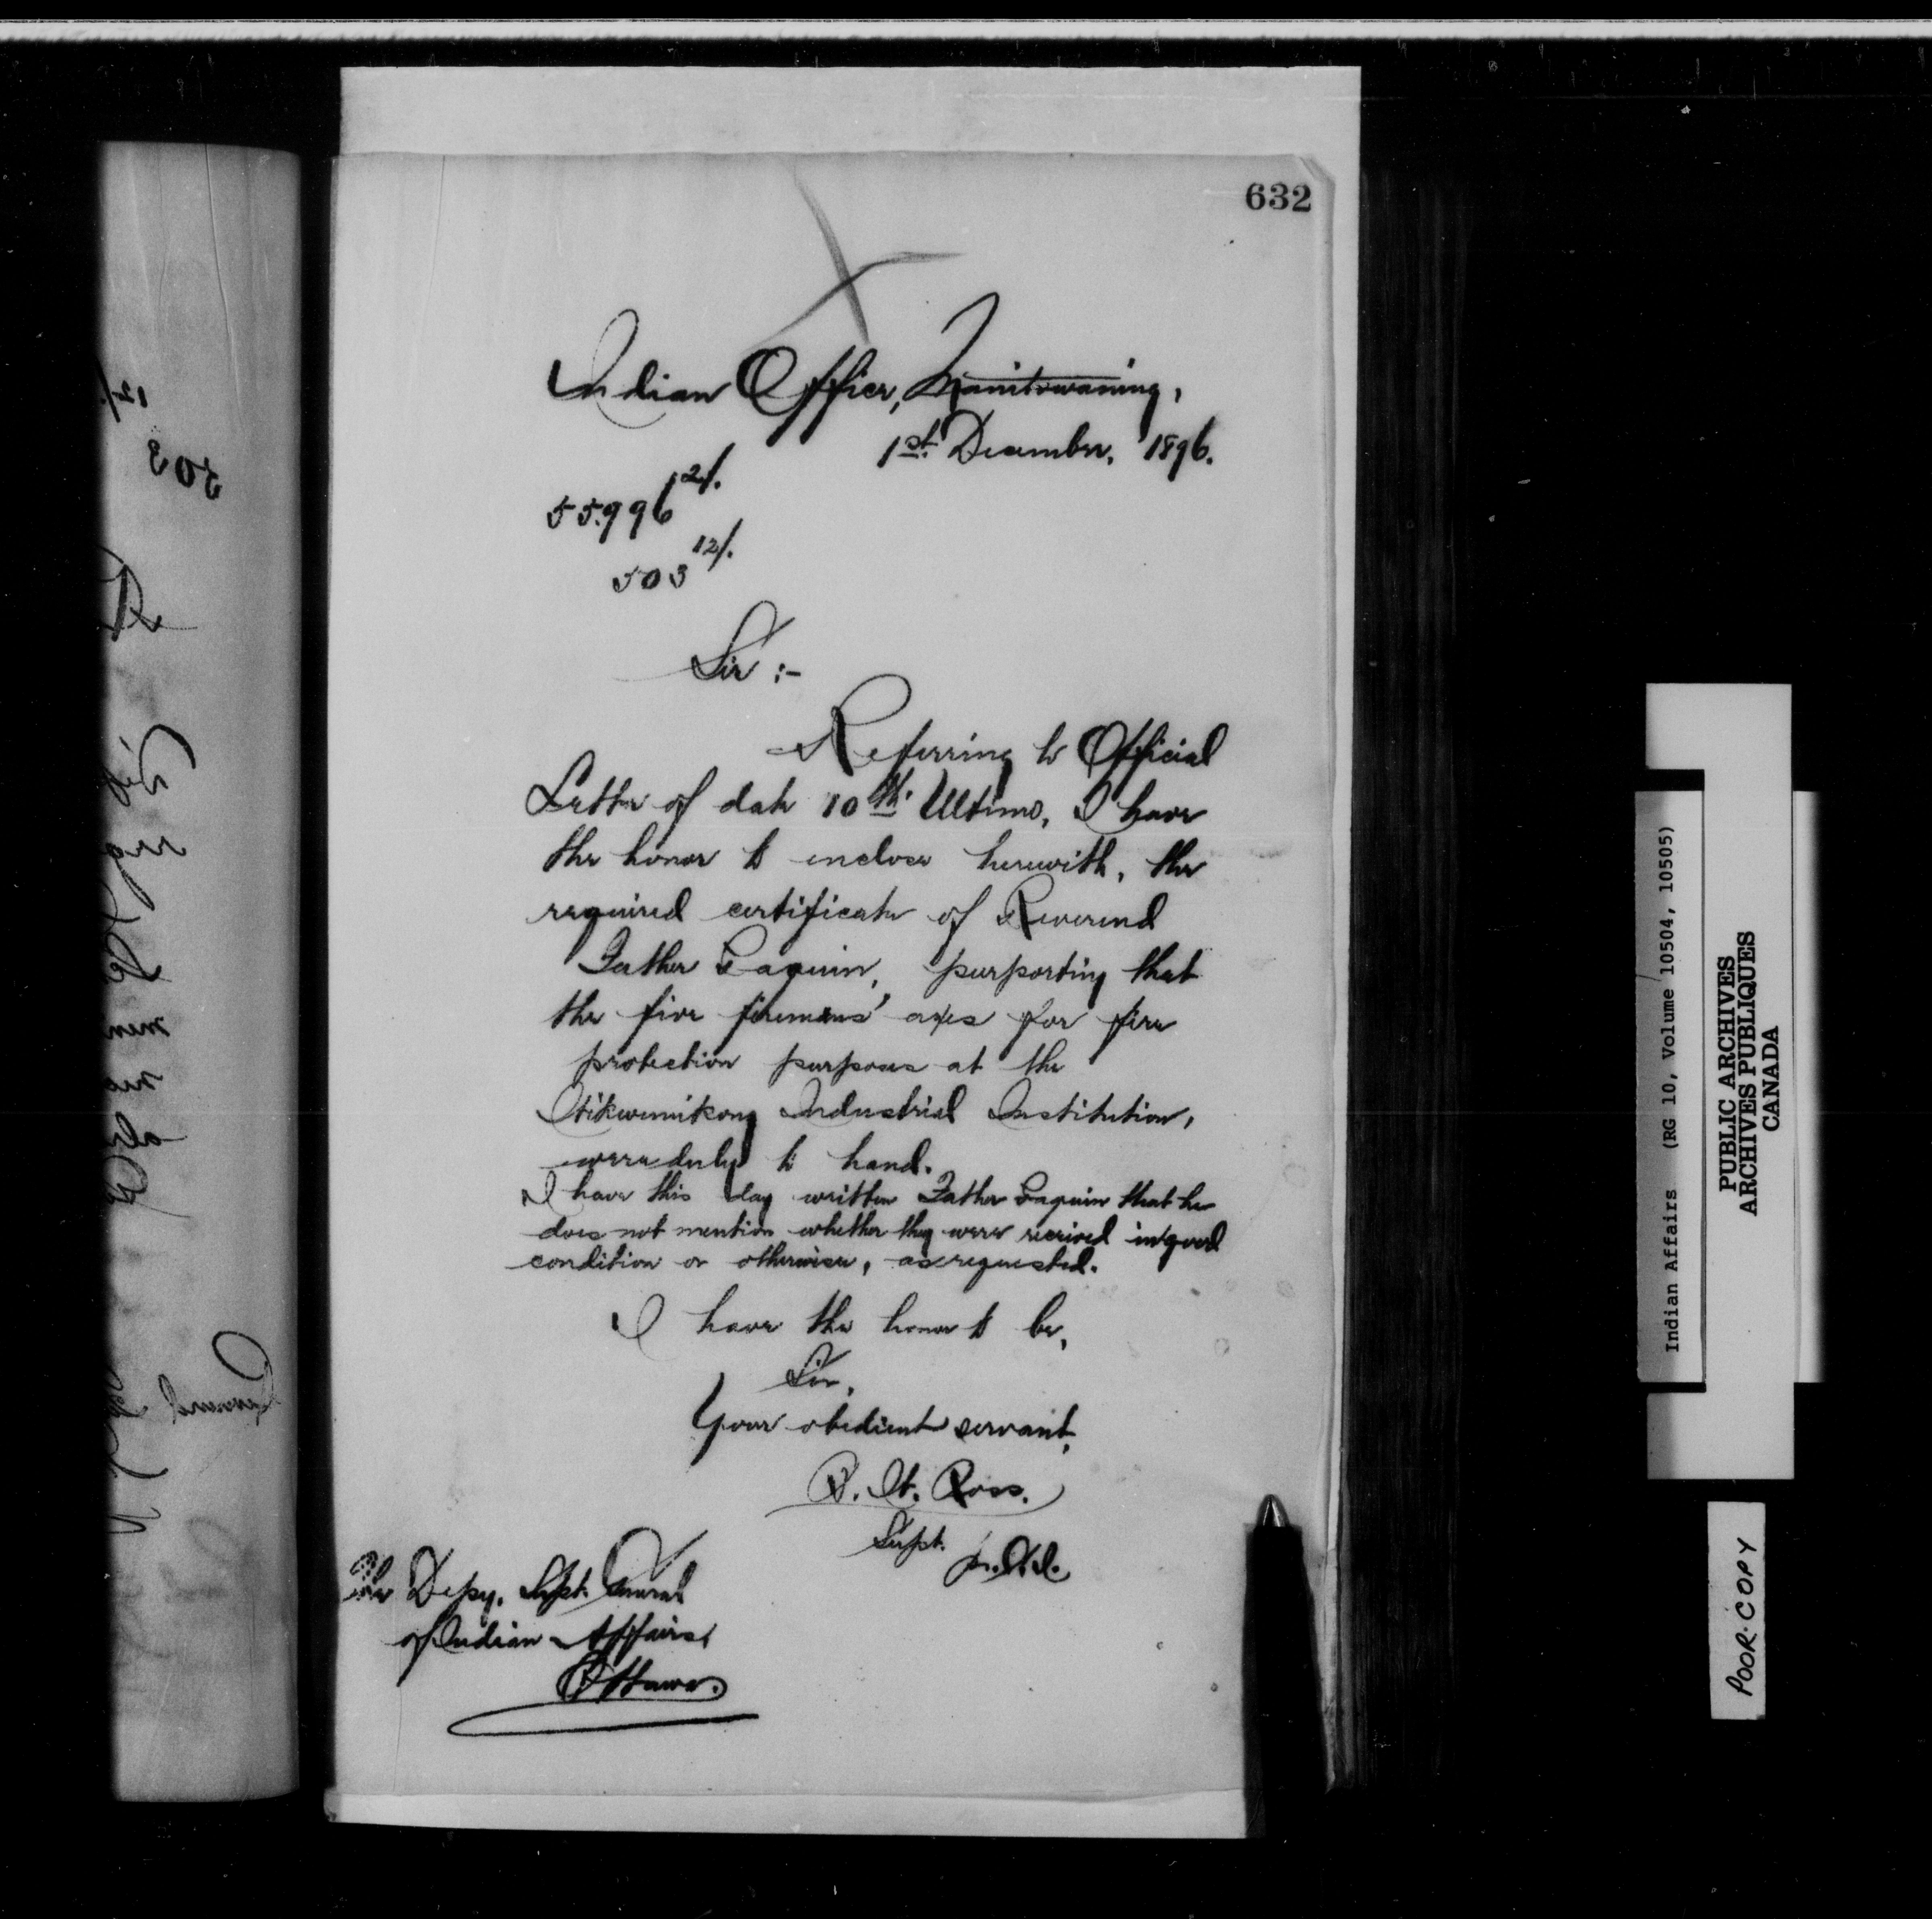 632
Indian Office, Manitowaning,
1st. December, 1896.
55.996 2/.
503 12/.
Sir :-
Referring to Official
Letter of date 10th. Ultimo, I have
the honor to enclose herewith, the
required certificate of Reverend
Father Paquin, purporting that
the five firemens' axes for fire
protection purposes at the
Wikwemikong Industrial Institution,
were duly to hand.
I have this day written Father Paquin that he
does not mention whether they were received in good
condition or otherwise, as requested.
I have the honor to be,
Sir,
Your obedient servant,
B. W. Ross.
Supt.
The Depy. Supt. General
of Indian Affairs,
Ottawa.
Indian Affairs (RG 10, Volume 10504, 10505)
PUBLIC ARCHIVES
ARCHIVES PUBLIQUES
CANADA
POOR COPY